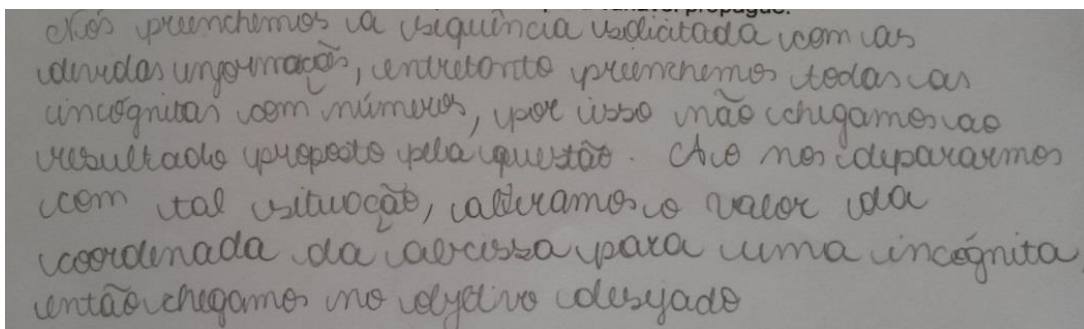 propague.
Nós preenchemos a sequência solicitada com as
devidas informações, entretanto preenchemos todas as
incógnitas com números, por isso não chegamos ao
resultado proposto pela questão. Ao nos depararmos
com tal situação, alteramos o valor da
coordenada da abcissa para uma incógnita
então chegamos no objetivo desejado